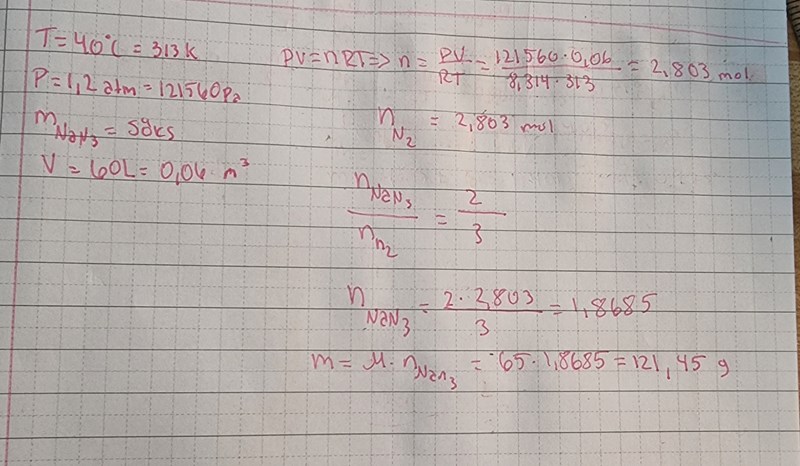 T = 40°C = 313 K
P = 1,2 atm = 121560 Pa
m NaN3 = søkes
V = 60L = 0,06 m³
PV = nRT => n = PV/RT = 121560 · 0,06 / 8,314 · 313 = 2,803 mol
n N2 = 2,803 mol
n NaN3 / n n2 = 2/3
n NaN3 = 2 · 2,803 / 3 = 1,8685
m = M · n NaN3 = 65 · 1,8685 = 121,45 g